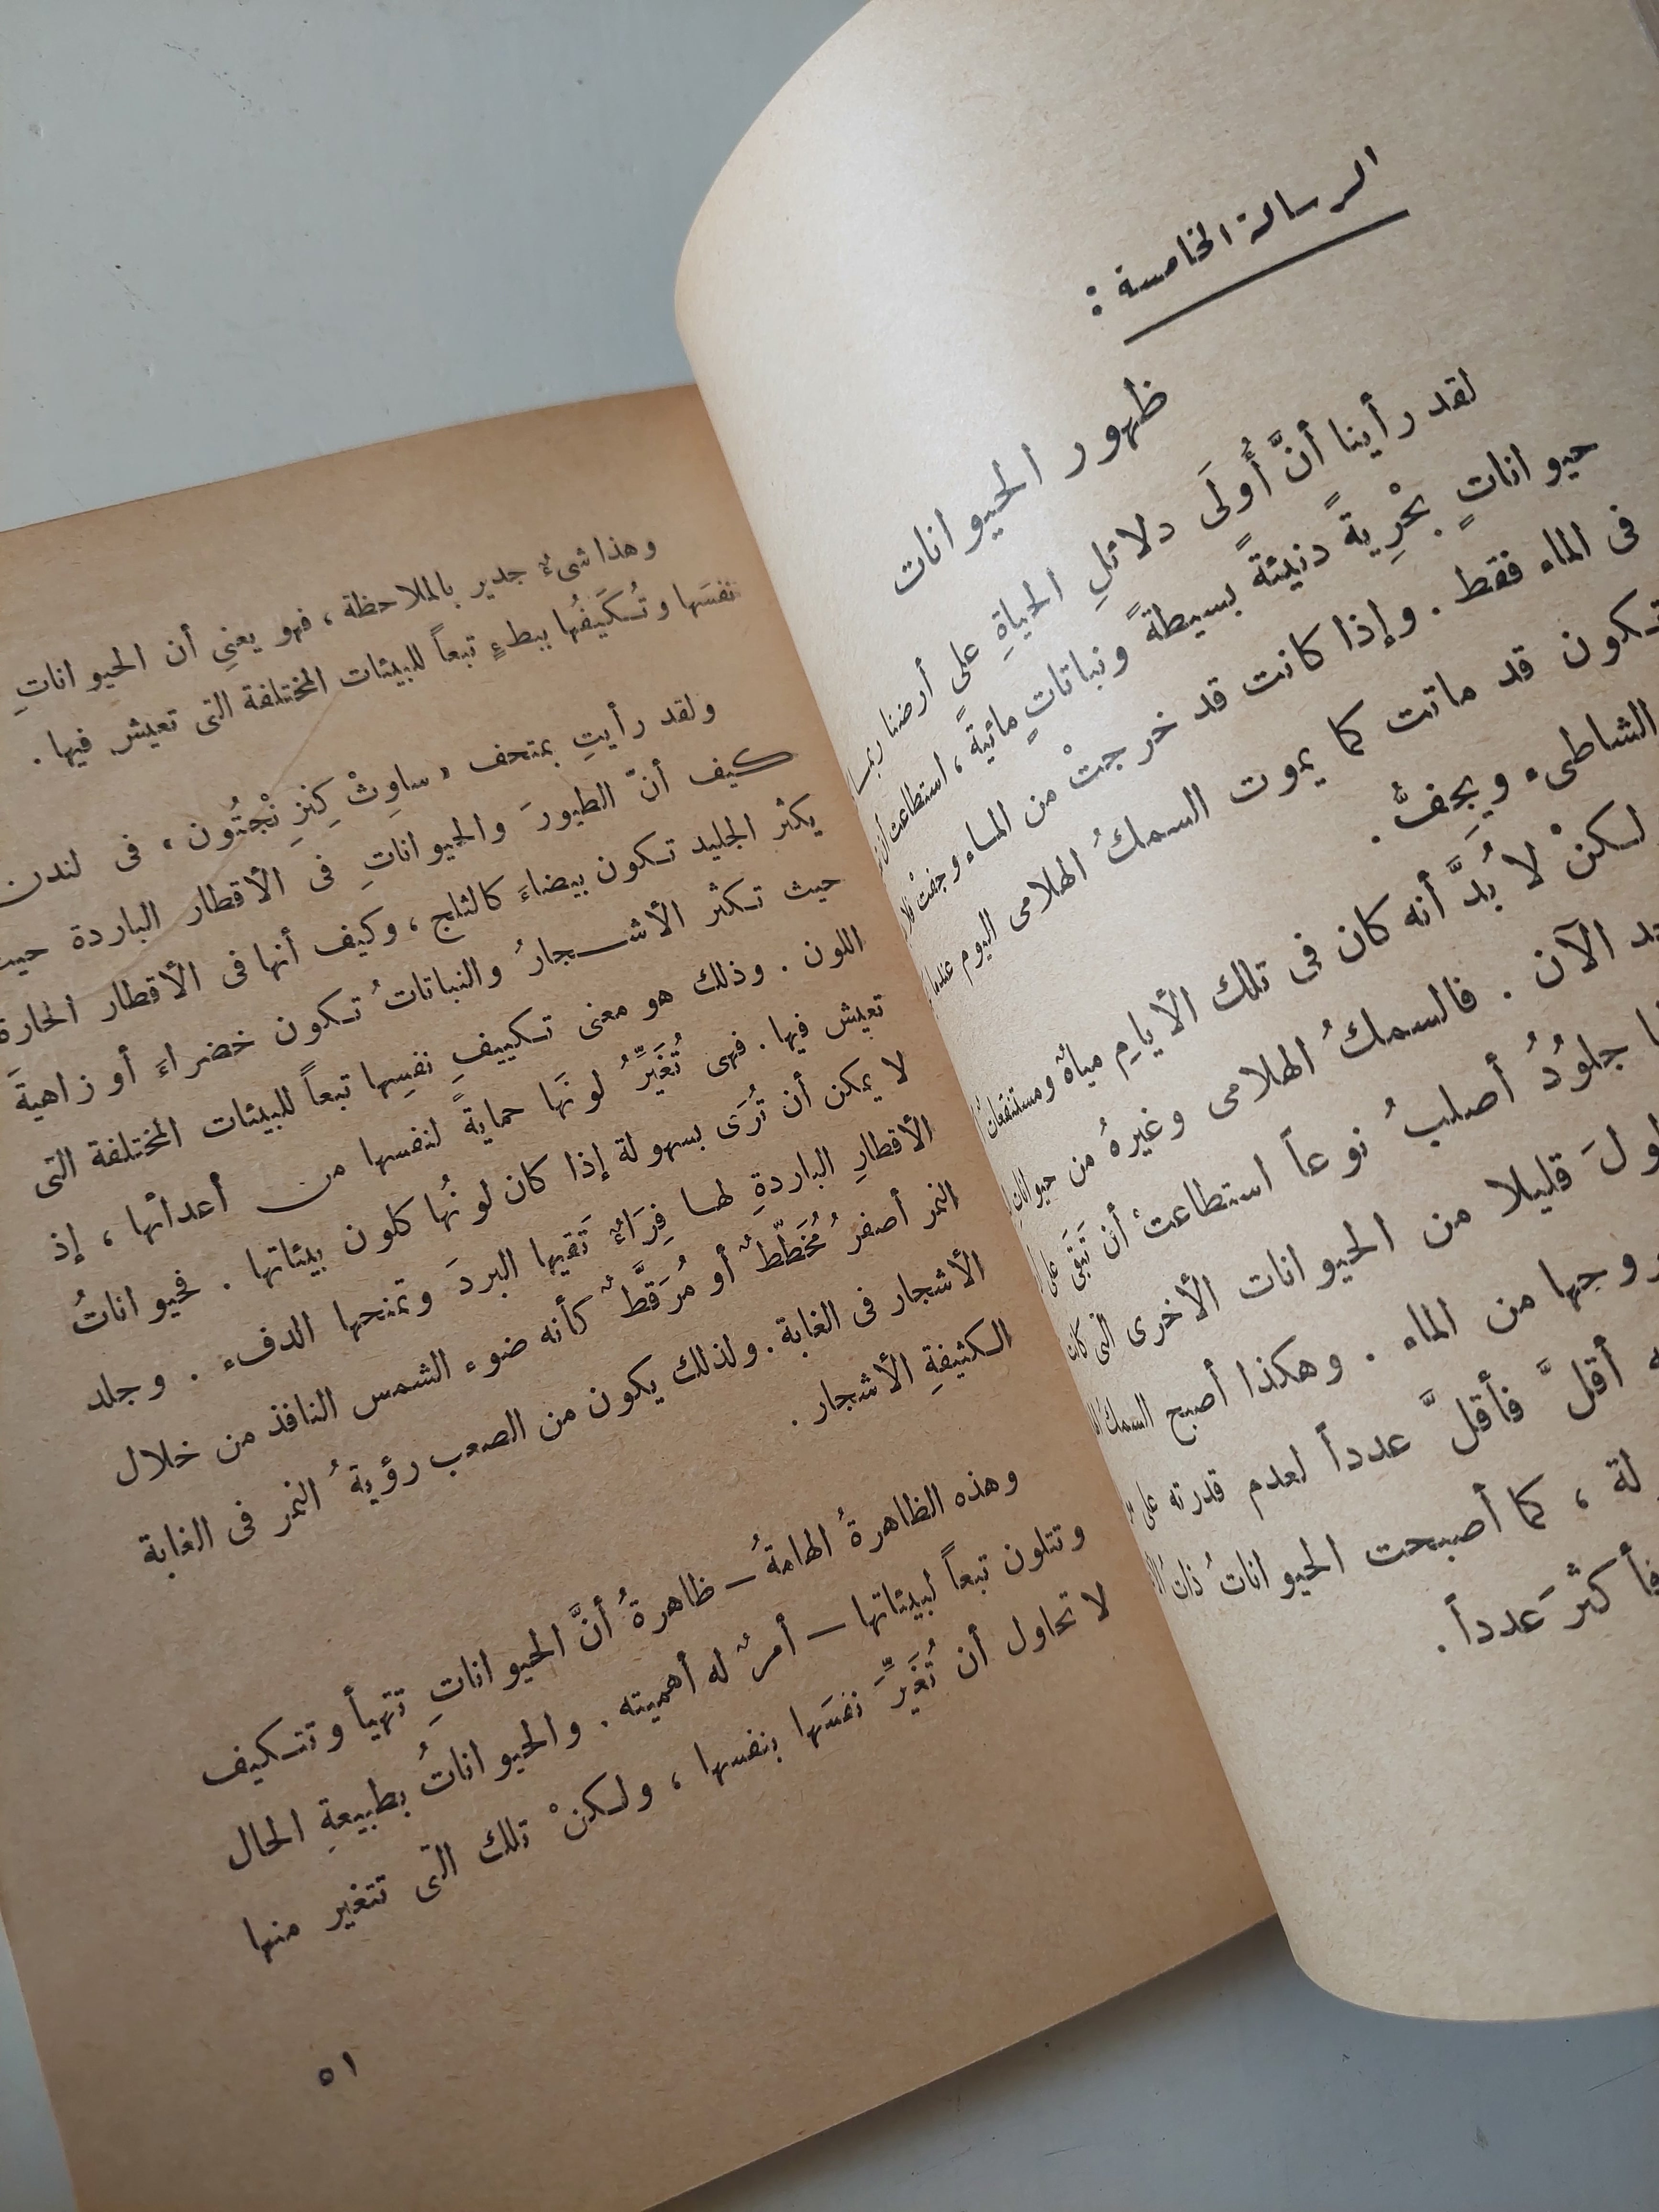 الرسالة الخامسة :
ظهور الحيوانات
لقد رأينا أنَّ أُولَى دلائلِ الحياةِ على أرضنا ربما
حيواناتٍ بحْرِيةً دنيئةً بسيطةً ونباتاتٍ مائيةً ، استطاعت أن
فى الماء فقط . وإذا كانت قد خرجتْ من الماء وجفتْ
تكون قد ماتت كما يموت السمكُ الهلامى اليوم عندما
الشاطىء ويجفُّ .
لكنْ لا بُدَّ أنه كان فى تلك الأيامِ مياهٌ ومستنقعات
الآن . فالسمكُ الهلامى وغيرهُ من حيوانات
جلُودُ أصلبُ نوعاً استطاعتْ أن تَبقى على
قليلا من الحيوانات الأخرى التى كانت
من الماء . وهكذا أصبح السمك
أقلَّ فأقلَّ عدداً لعدم قدرته على
، كما أصبحت الحيواناتُ ذات
فأكثرَ عدداً .
وهذا شىءٌ جدير بالملاحظة ، فهو يعنى أن الحيواناتِ
نفسَها وتُكَيفُها ببطءٍ تبعاً للبيئات المختلفة التى تعيش فيها .
ولقد رأيتِ بمتحف « ساوِثْ كِنزِ نْجْتُون » فى لندن
كيف أنّ الطيورَ والحيواناتِ فى الأقطار الباردة حيث
يكثر الجليد تكون بيضاءَ كالثلج ، وكيف أنها فى الأقطار الحارة
حيث تكثر الأشجارُ والنباتاتُ تكون خضراءَ أو زاهيةَ
اللون . وذلك هو معنى تكييفِ نفسِها تبعاً للبيئات المختلفة التى
تعيش فيها . فهى تُغَيِّرُ لونَها حمايةً لنفسها من أعدائها ، إذ
لا يمكن أن تُرَى بسهولة إذا كان لونُها كلون بيئاتها . فحيواناتُ
الأقطارِ الباردةِ لها فِرَاءٌ تَقيها البردَ وتمنحها الدفء . وجلد
النمر أصفرُ مُخَطّطٌ أو مُرَقَّطٌ كأنه ضوء الشمس النافذ من خلال
الأشجار فى الغابة . ولذلك يكون من الصعب رؤيةُ النمر فى الغابة
الكثيفةِ الأشجار .
وهذه الظاهرةُ الهامةُ – ظاهرةُ أنَّ الحيواناتِ تتهيأ وتتكيف
وتتلون تبعاً لبيئاتها – أمرٌ له أهميته . والحيواناتُ بطبيعةِ الحال
لا تحاول أن تُغَيِّرَ نفسَها بنفسها ، ولكنْ تلك التى تتغير منها
٥١